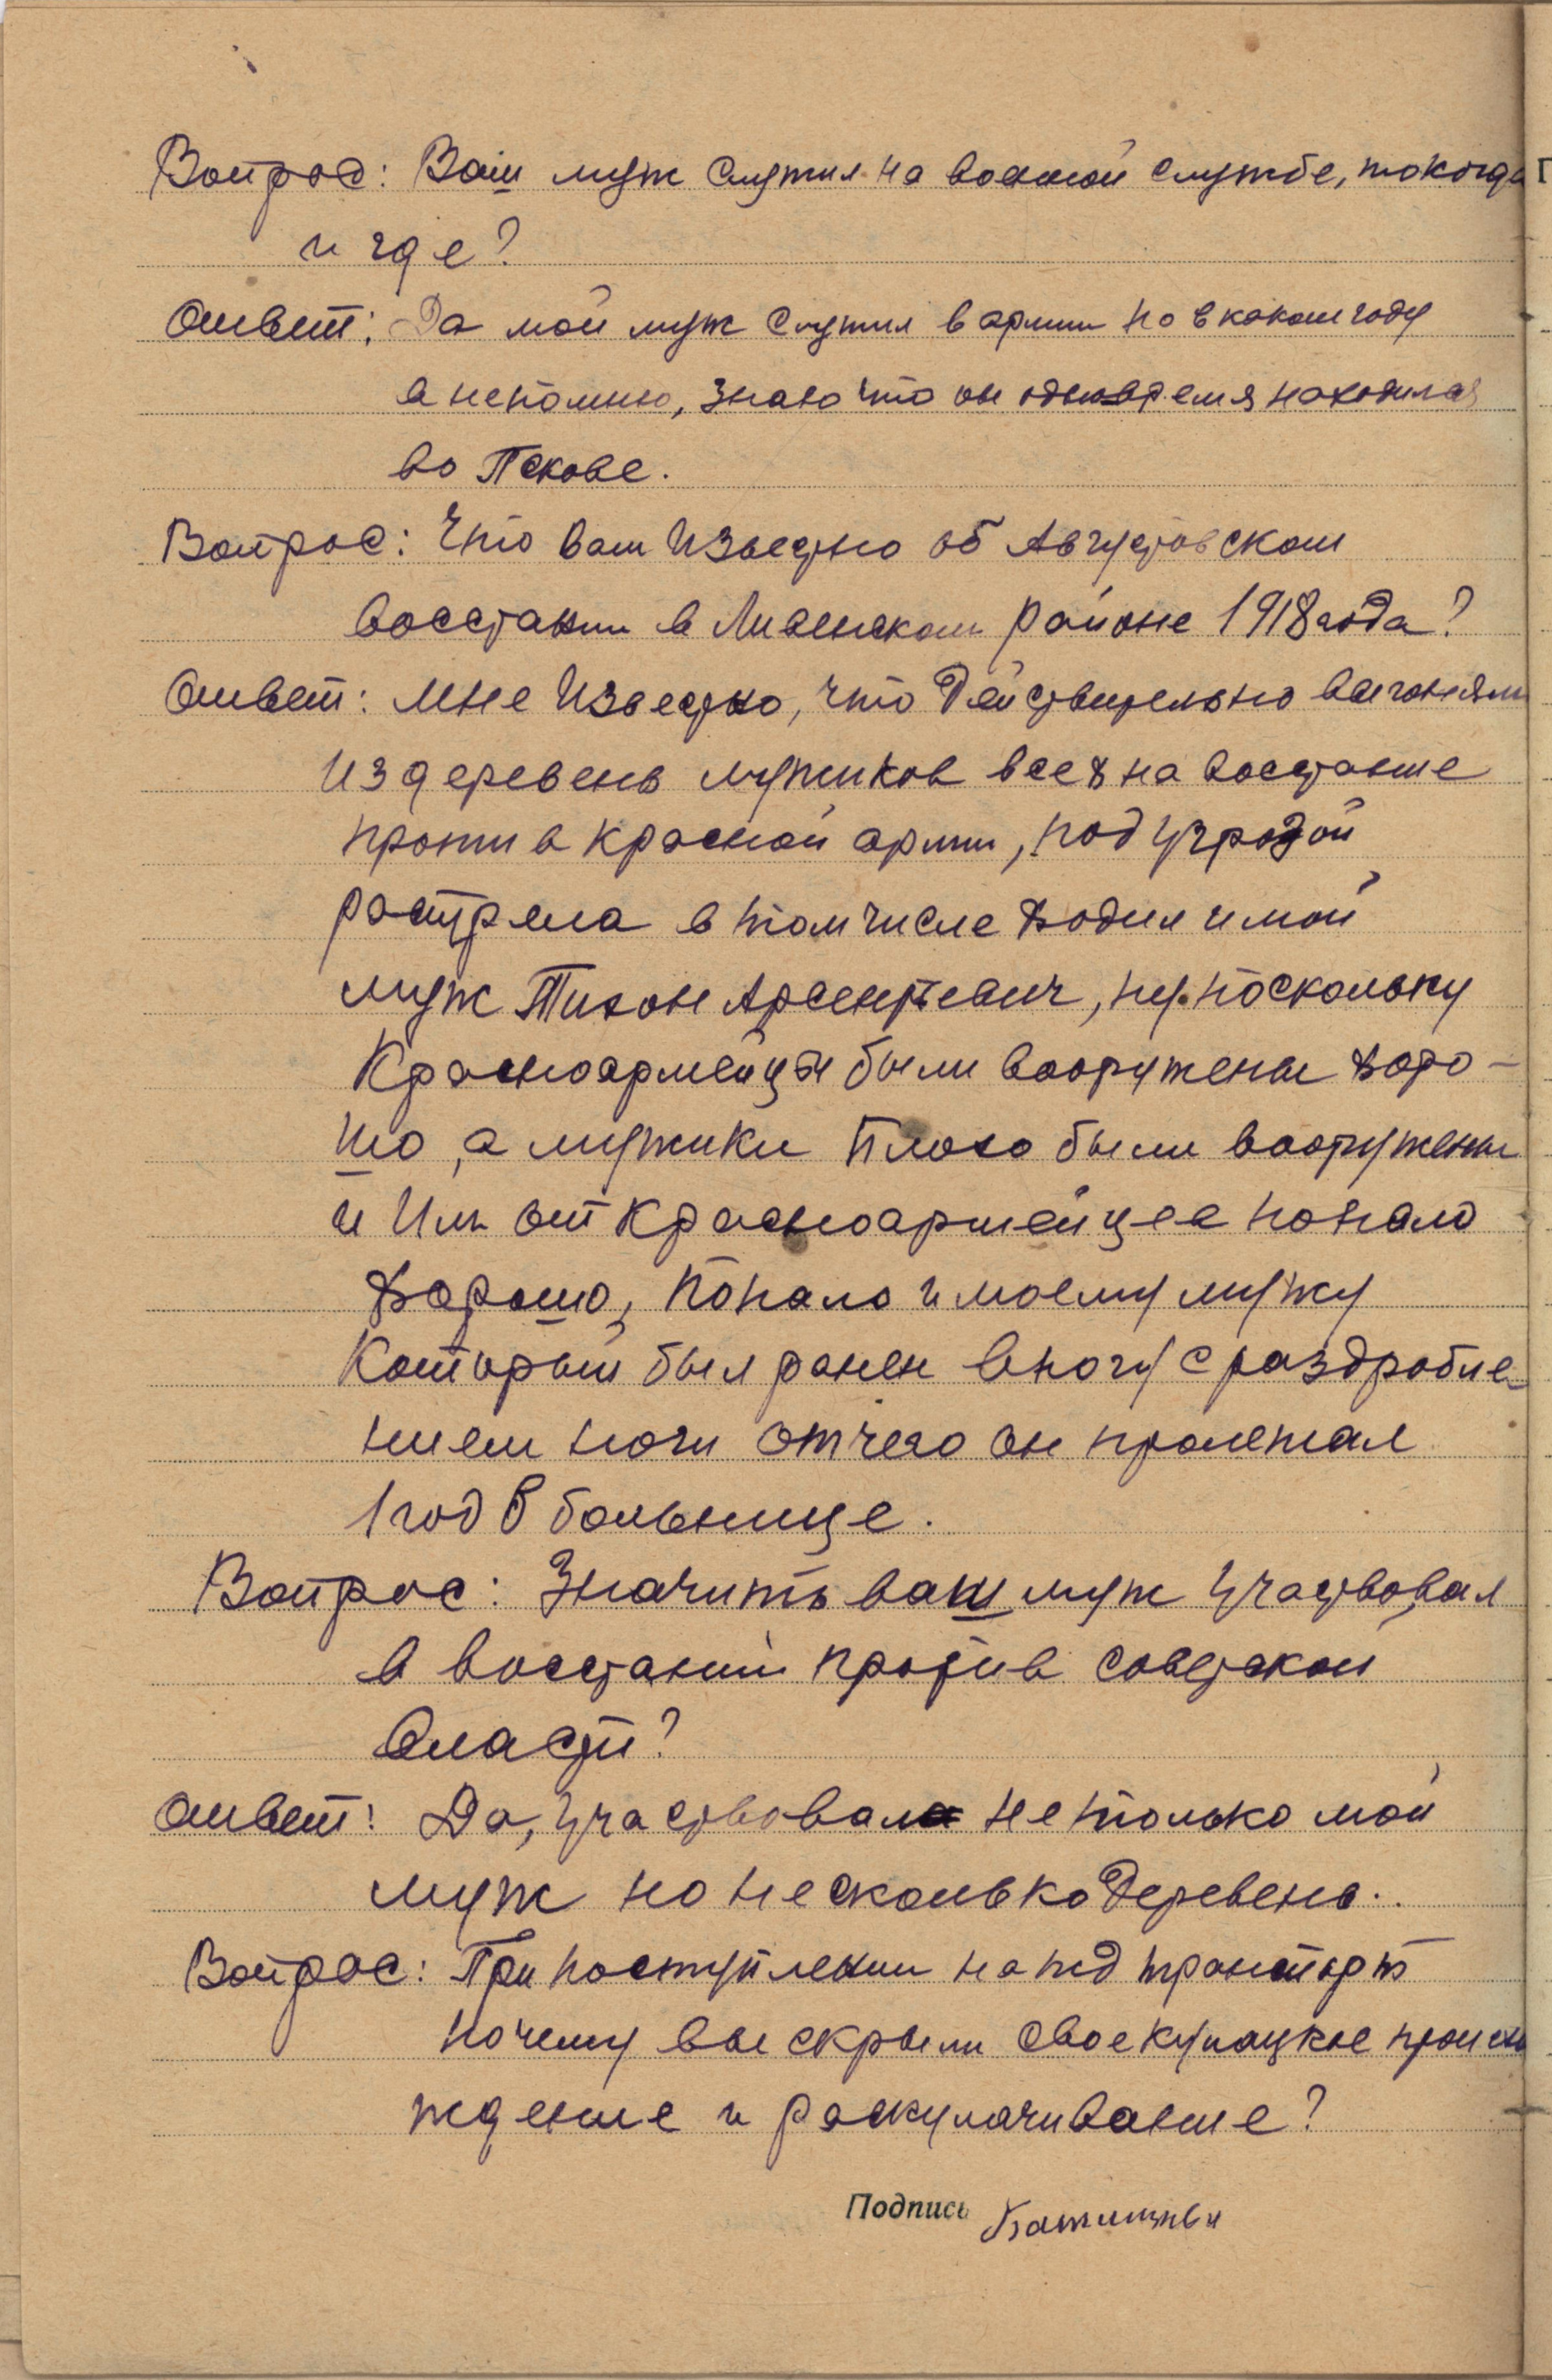 Вопрос: Ваш муж служил на военной службе, то когда
и где?
Ответ: Да мой муж служил в армии но в каком году
я непомню, знаю что он одно время находился
во Пскове.
Вопрос: Что вам известно об Августовском
восстании в Ливенском районе 1918 года?
Ответ: Мне известно, что действительно выгоняли
из деревень мужиков всех на восстание
против красной армии, под угрозой
растрела в том числе ходил и мой
муж Тихон Арсентьевич, ну поскольку
Красноармейцы были вооружены хоро-
шо, а мужики плохо были вооружены
и им от красноармейцев попало
хорошо, попало и моему мужу
который был ранен в ногу с раздробле-
нием ноги отчего он пролежал
1 год в больнице.
Вопрос: Значить ваш муж участвовал
в восстании против советской
власти?
Ответ: Да, участвовал не только мой
муж но несколько деревень.
Вопрос: При поступлении на жд транспорт
почему вы скрыли свое кулацкое происхо
ждение и раскулачивание?
Подпись